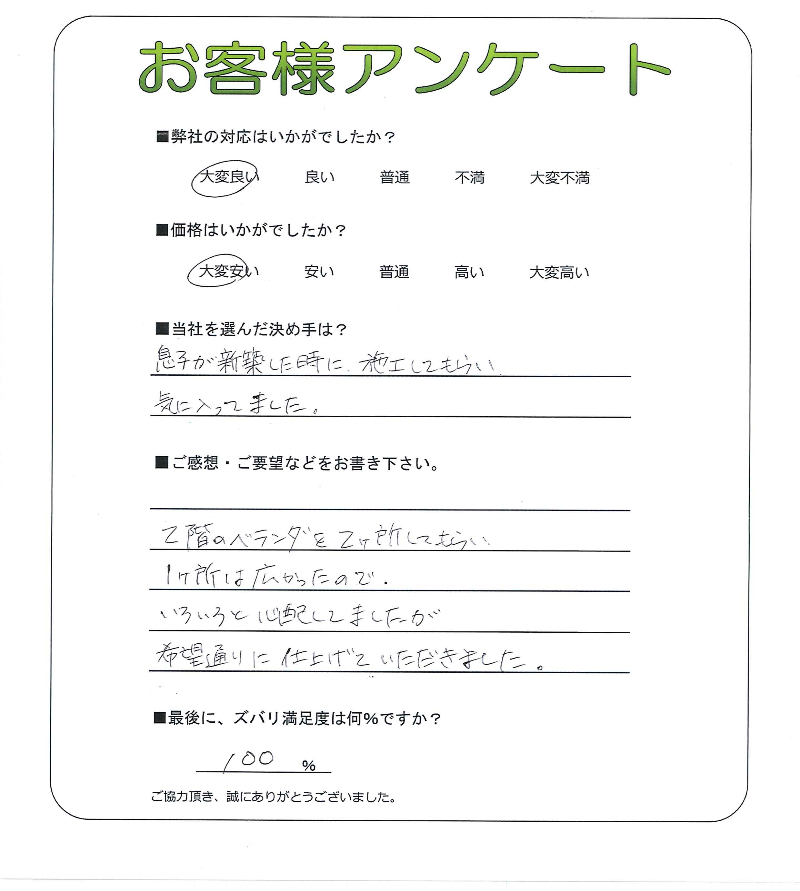 お客様アンケート
■弊社の対応はいかがでしたか？
大変良い 良い 普通 不満 大変不満
■価格はいかがでしたか？
大変安い 安い 普通 高い 大変高い
■当社を選んだ決め手は？
息子が新築した時に、施工してもらい
気に入ってました。
■ご感想・ご要望などをお書き下さい。
2階のベランダを2ヶ所してもらい、
1ヶ所は広かったので、
いろいろと心配してましたが
希望通りに仕上げていただきました。
■最後に、ズバリ満足度は何%ですか？
100 %
ご協力頂き、誠にありがとうございました。